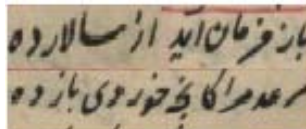 باز فرمان آید از سالار ده
مر عدم را کانچ خوردی باز ده